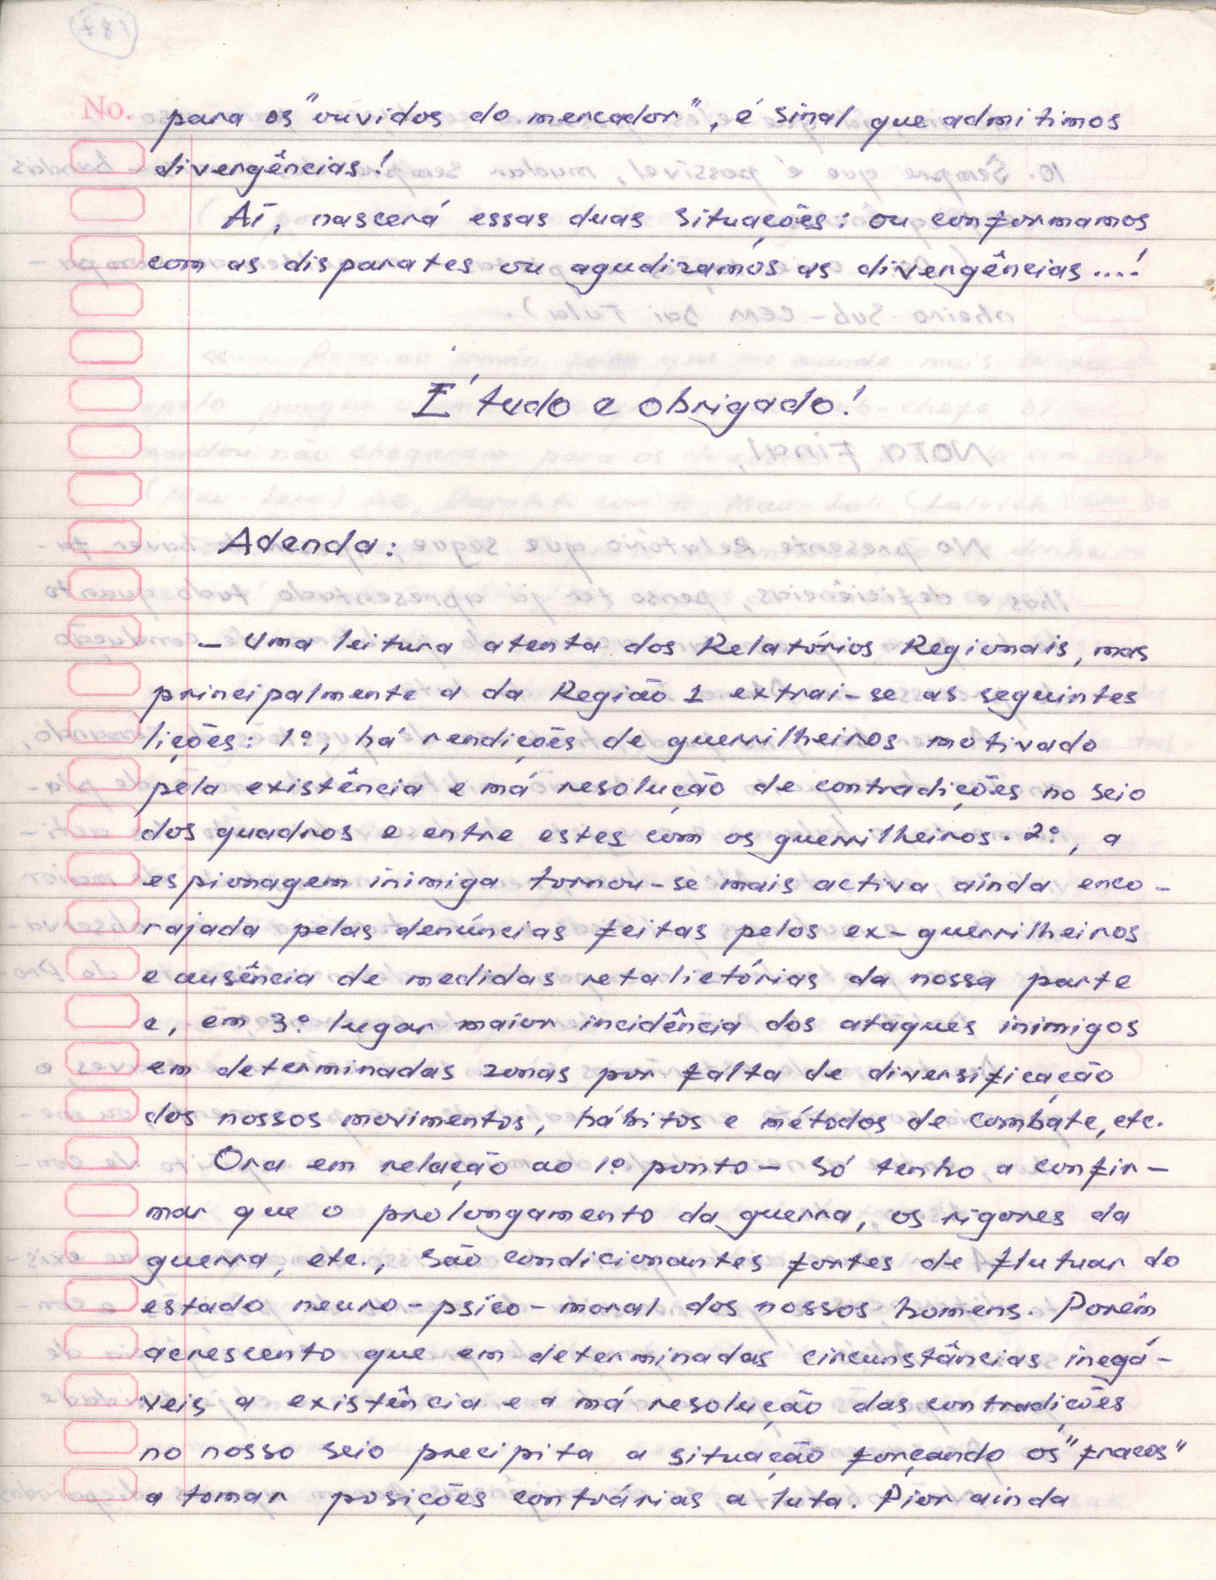 No.
para os "ouvidos do mercador", é sinal que admitimos
divergências!
Aí, nascerá essas duas situações: ou conformamos
com as disparates ou agudizamos as divergências....!
É tudo e obrigado!
Adenda:
- Uma leitura atenta dos Relatórios Regionais, mas
principalmente a da Região 1 extrai-se as seguintes
lições: 1º, há rendições de guerrilheiros motivado
pela existência e má resolução de contradições no seio
dos quadros e entre estes com os guerrilheiros. 2º, a
espionagem inimiga tornou-se mais activa ainda enco-
rajada pelas denúncias feitas pelos ex-guerrilheiros
e ausência de medidas retalietórias da nossa parte
e, em 3º lugar maior incidência dos ataques inimigos
em determinadas zonas por falta de diversificação
dos nossos movimentos, hábitos e métodos de combate, etc.
Ora em relação ao 1º ponto - Só tenho a confir-
mar que o prolongamento da guerra, os rigores da
guerra, etc., são condicionantes fortes de flutuar do
estado neuro-psico-moral dos nossos homens. Porém
acrescento que em determinadas circunstâncias inegá-
veis a existência e a má resolução das contradições
no nosso seio precipita a situação forçando os "fracos"
a tomar posições contrárias a luta. Pior ainda